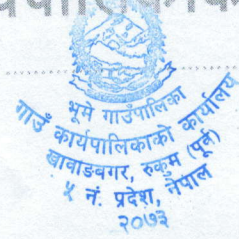 भूमे गाउँपालिका
गाउँ कार्यपालिकाको कार्यालय
खावाङबगर, रुकुम (पूर्व)
५ नं. प्रदेश, नेपाल
२०७३